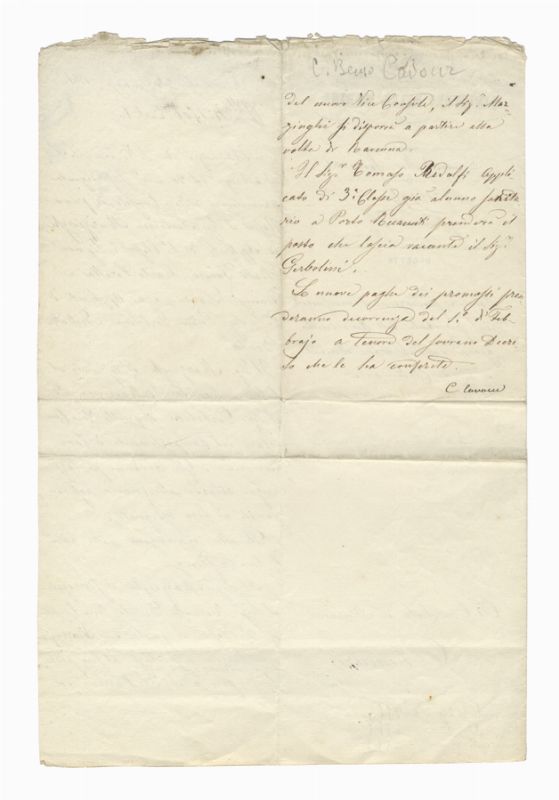 C. Benso Cavour
del nuovo Vice Console, il Sigr. Mar=
zinghi si disporrà a partire alla
volta di Ravenna.
Il Sigr. Tomaso Ridolfi Appli
cato di 3a. Classe già alunno sanita
rio a Porto Recanati prenderà il
posto che lascia vacante il Sigr.
Gerbolini.
Le nuove paghe dei promossi pren
deranno decorrenza del 1o. di Feb-
brajo a tenore del Sovrano Decre
to che le ha conferite.
C. Cavour